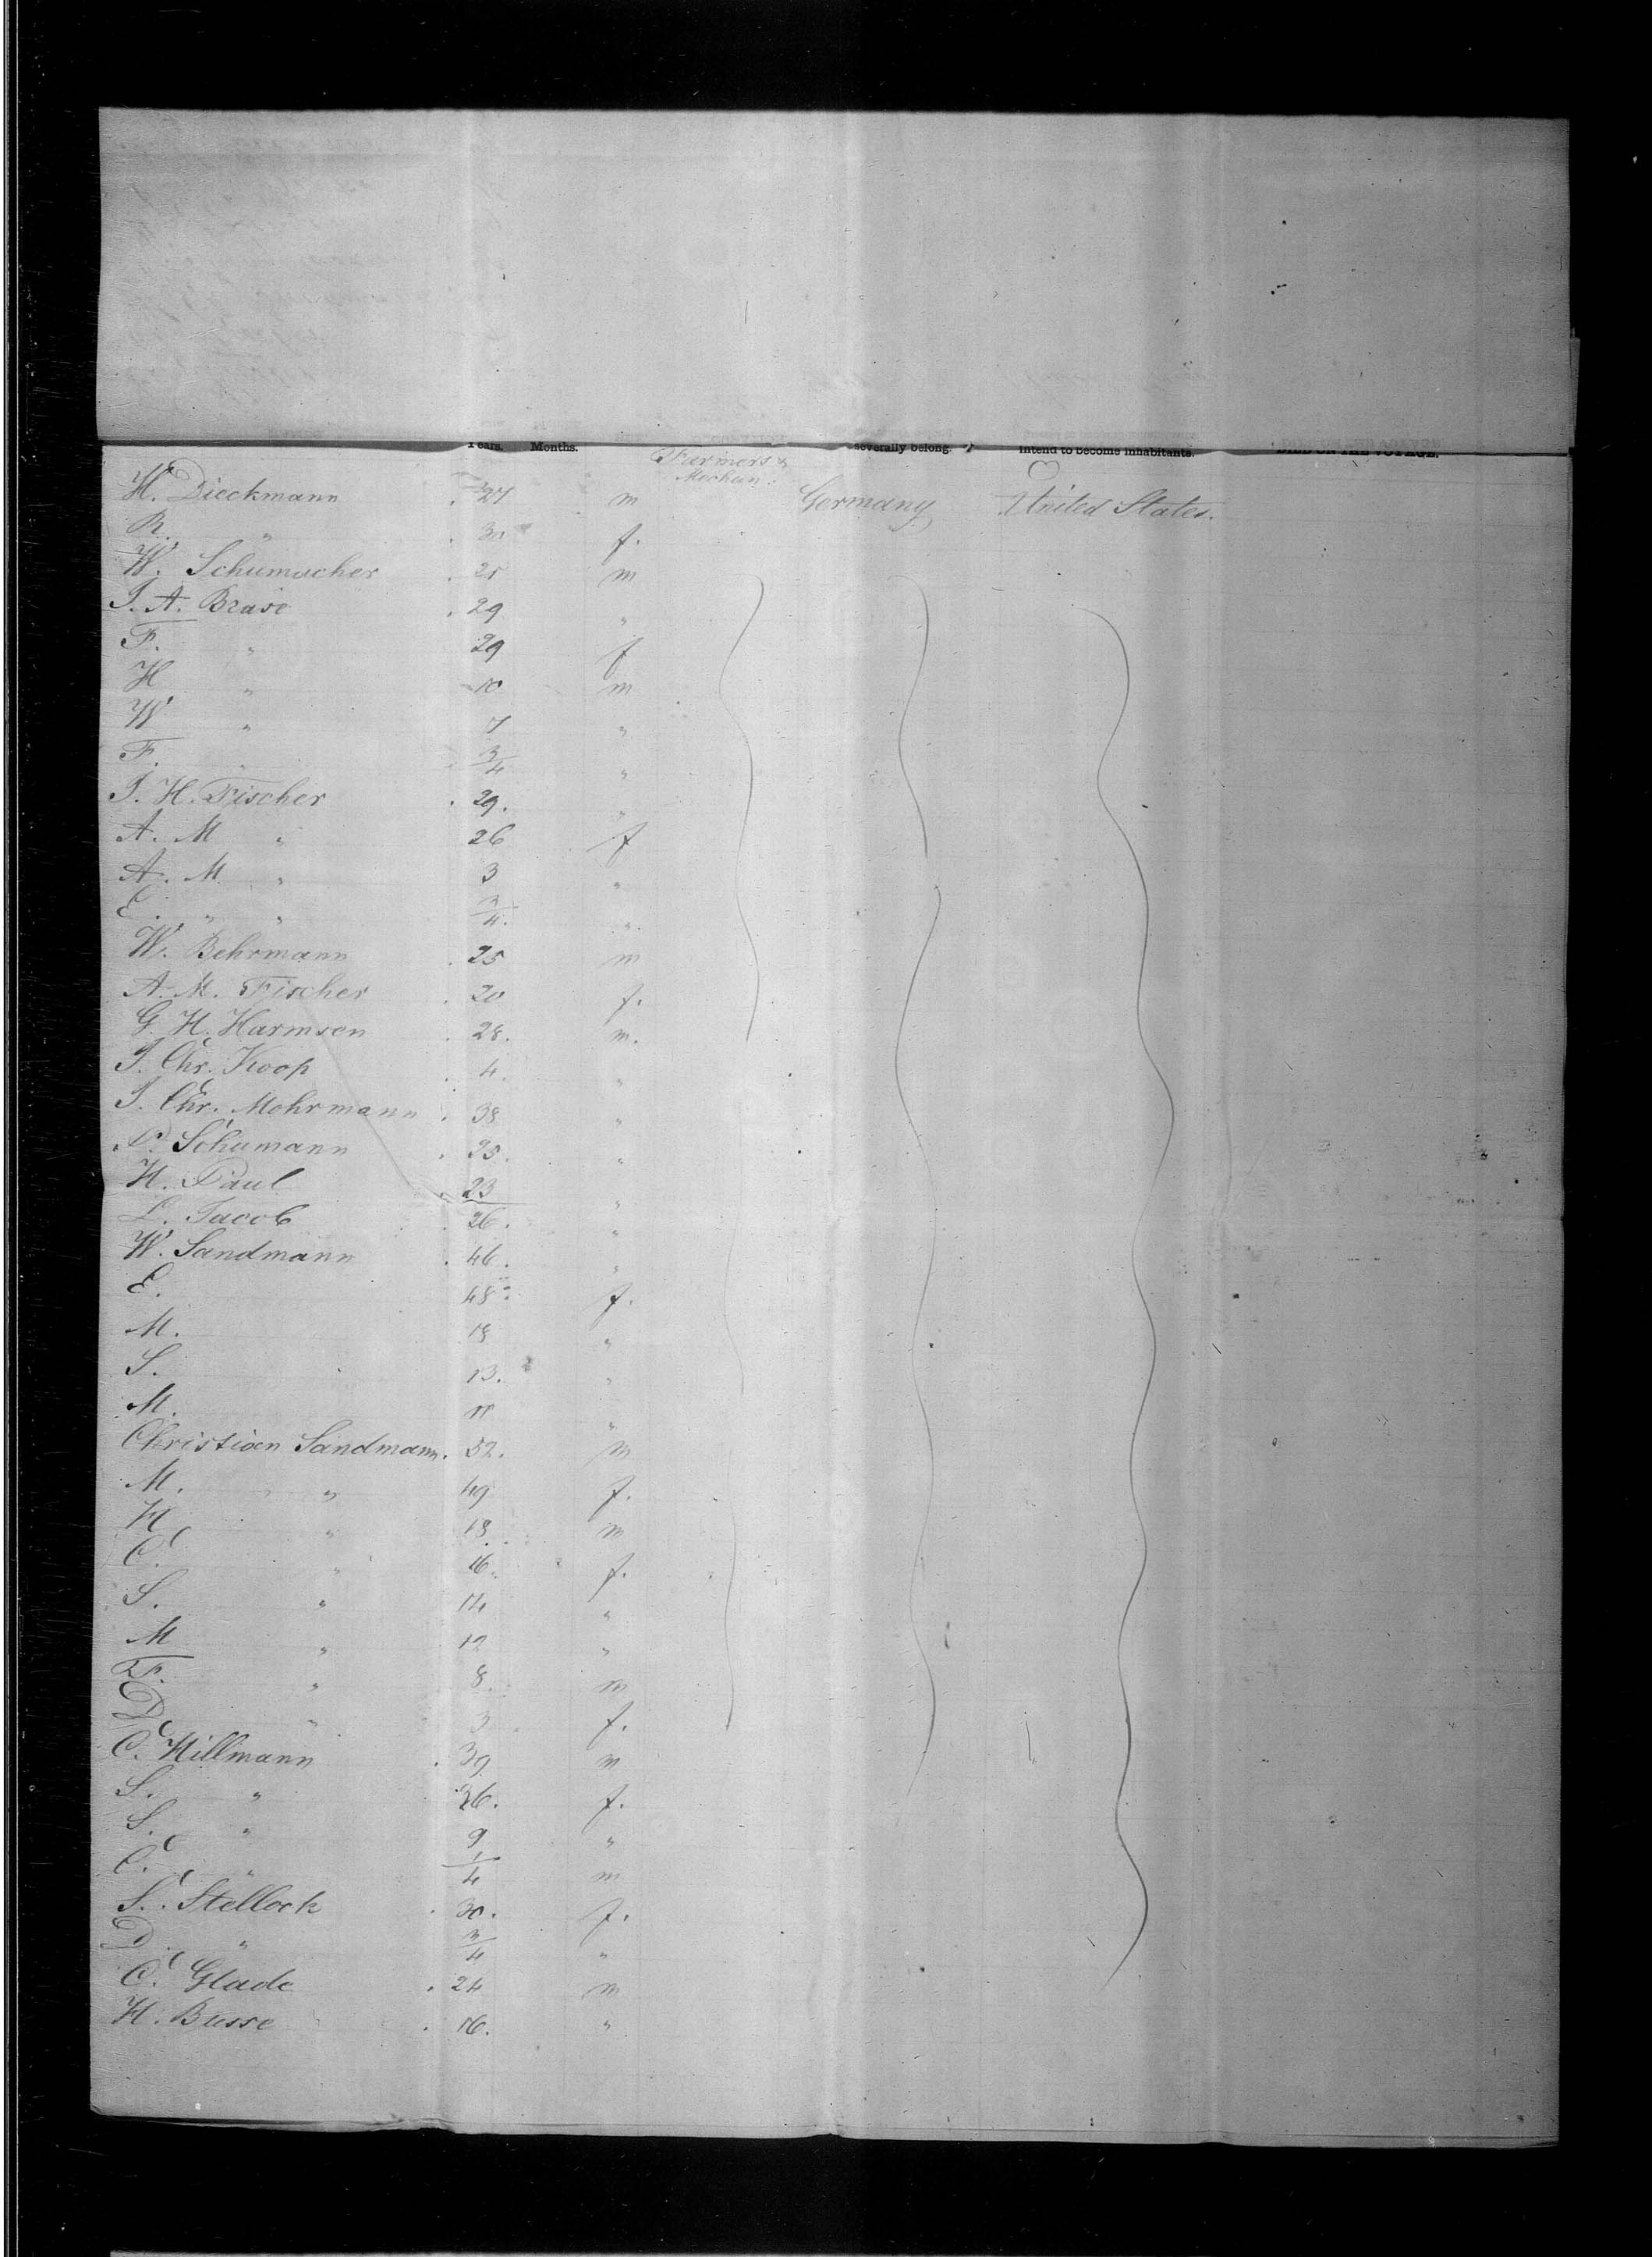 Years. Months. severally belong. intend to become inhabitants. DIED ON THE VOYAGE.
Farmers &
H. Dieckmann . 27 m Germany United States.
R. " . 30 f.
W. Schumacher . 25 m
J. A. Brase . 29 "
F. " 29 f
H " 10 m
W " 7 "
F. " 3/4 "
J. H. Fischer . 29. "
A. M " 26 f
A. M " 3 "
E. " " 3/4. "
W. Behrmann . 25 m
A. M. Fischer . 20 f.
G. H. Harmsen . 28. m.
J. Chr. Koop . 4. "
J. Chr. Mohrmann . 38 "
Schumann . 25. "
H. Paul . 23 "
L. Jacob . 26. "
W. Sandmann . 46. "
E. 48. f.
M. 18 "
S. 13. "
M. 11 "
Christian Sandmann. 52. m
M. " 49 f.
H " 18. m
C. " 16. f.
S. " 14 "
M " 12 "
F. " 8. m
D " 3 f.
C. Hillmann . 39 m
S. " 36. f.
S. " 9 "
C. " 1/4 m
S. Stellock . 30. f.
D " 3/4 "
C. Glade . 24 m
H. Busse . 16. "